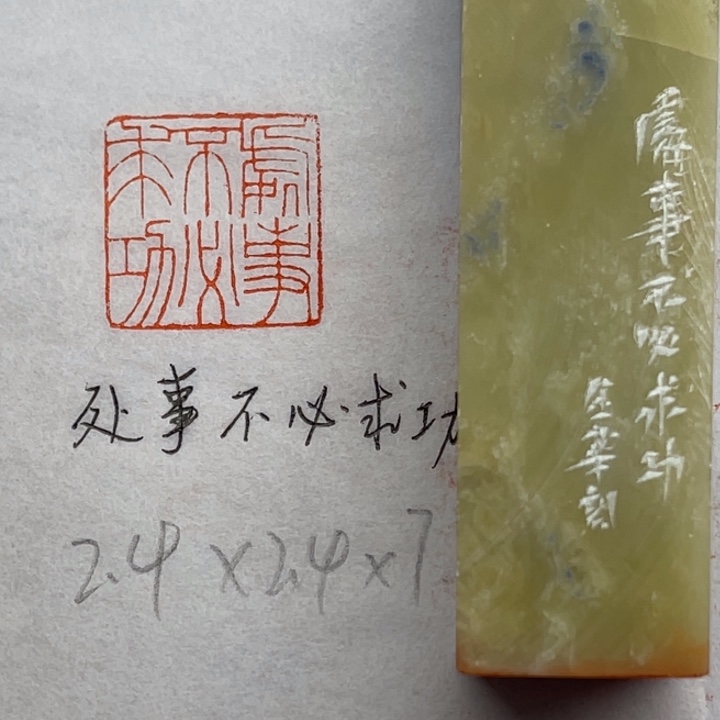 處事不必求功
处事不必求功
2.4×2.4×7
處事不必求功